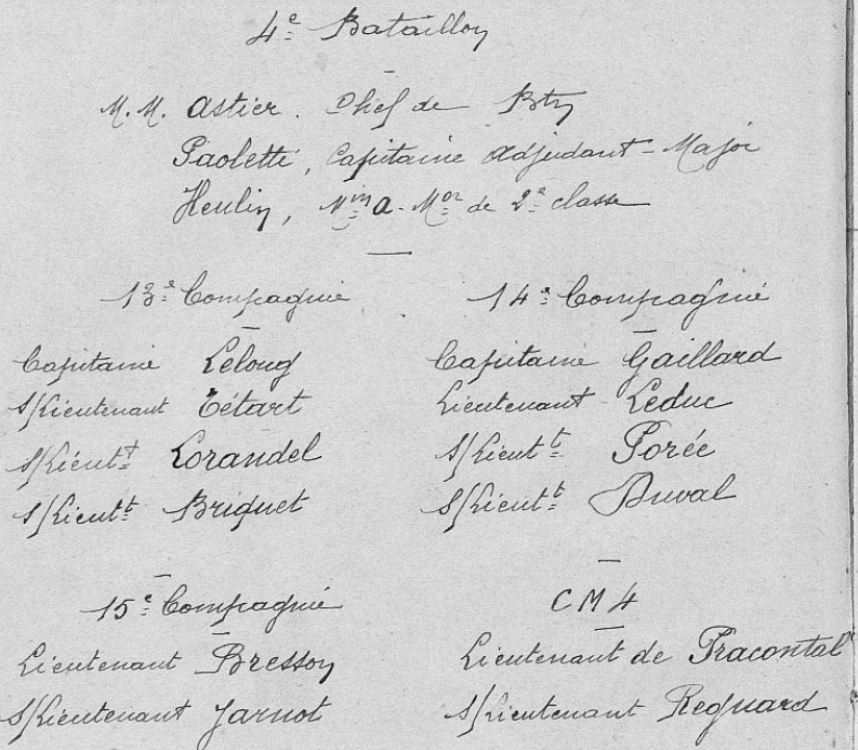 4e Bataillon
M.M. Astier. Chef de Btn
Paoletti, Capitaine adjudant-Major
Heulin, Min a-Mor de 2e classe
13e Compagnie
Capitaine Lelong
S/Lieutenant Tétart
S/Lieutt Lorandel
S/Lieutt Briquet
14e Compagnie
Capitaine Gaillard
Lieutenant Leduc
S/Lieutt Porée
S/Lieutt Duval
15e Compagnie
Lieutenant Bresson
S/Lieutenant Jarnot
CM4
Lieutenant de Pracontal
S/Lieutenant Regnard